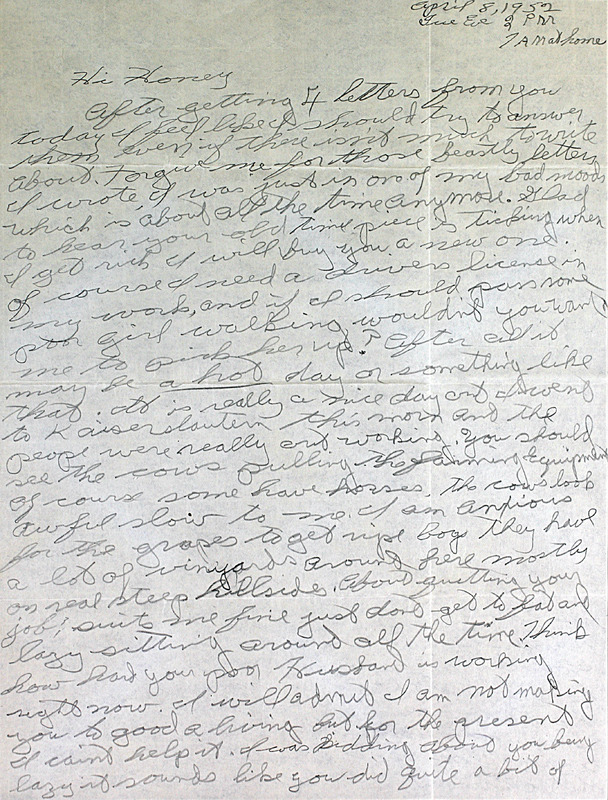 April 8, 1952
Tue Eve 2 PM
7 AM at home
Hi Honey
After getting 4 letters from you
today I feel like I should try to answer
them even if there isn't much to write
about. Forgive me for those beastly letters
I wrote I was just in one of my bad moods
which is about all the time anymore. Glad
to hear your old time piece is ticking when
I get rich I will buy you a new one.
Of course I need a drivers license in
my work, and if I should pass some
poor girl walking wouldn't you want
me to pick her up? After all it
may be a hot day or something like
that. It is really a nice day out I went
to Kaiserslautern this morn and the
peope were really out working. You should
see the cows pulling the farming Equipment
of course some have horses. The cows look
awful slow to me. I am anxious
for the grapes to get ripe boy they have
a lot of vineyards around here mostly
on real steep hillsides. About quitting your
job, suits me fine just dont get to fat and
lazy sitting around all the time. Think
how hard your poor Husband is working
right now. I will admit I am not making
you to good a living but for the present
I caint help it. I was kidding about you being
lazy it sounds like you did quite a bit of